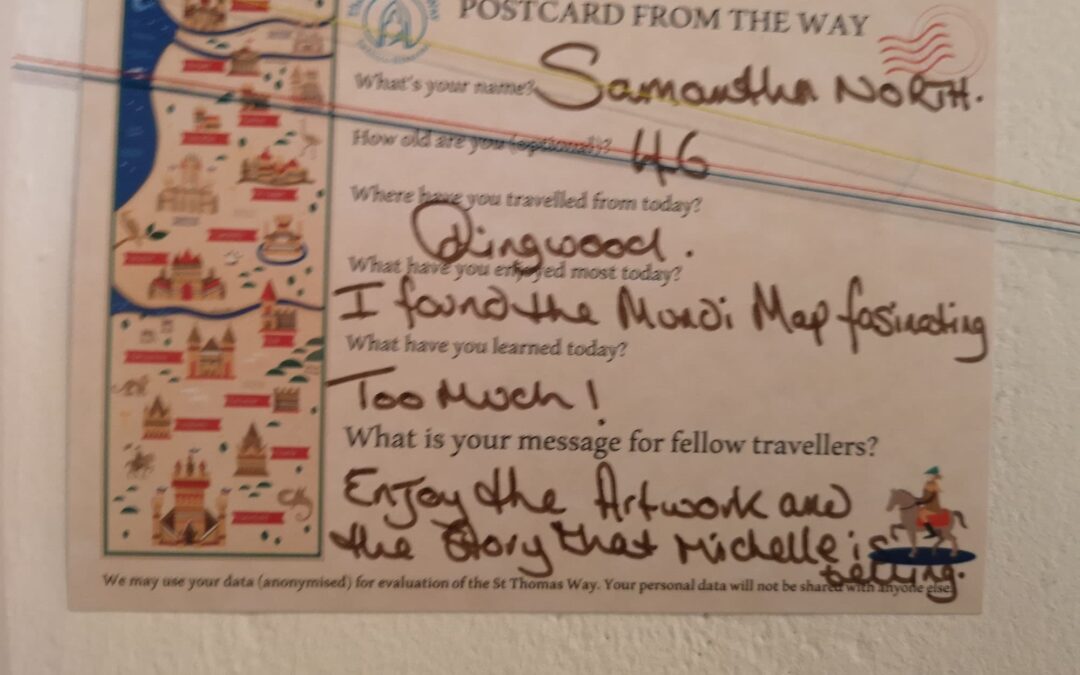 POSTCARD FROM THE WAY
What's your name? Samantha NORTH.
How old are you (optional)? 46
Where have you travelled from today?
Ringwood.
What have you enjoyed most today?
I found the Mundi Map fasinating
What have you learned today?
Too Much!
What is your message for fellow travellers?
Enjoy the Artwork and
the Story that Michelle is
telling.
We may use your data (anonymised) for evaluation of the St Thomas Way. Your personal data will not be shared with anyone else.